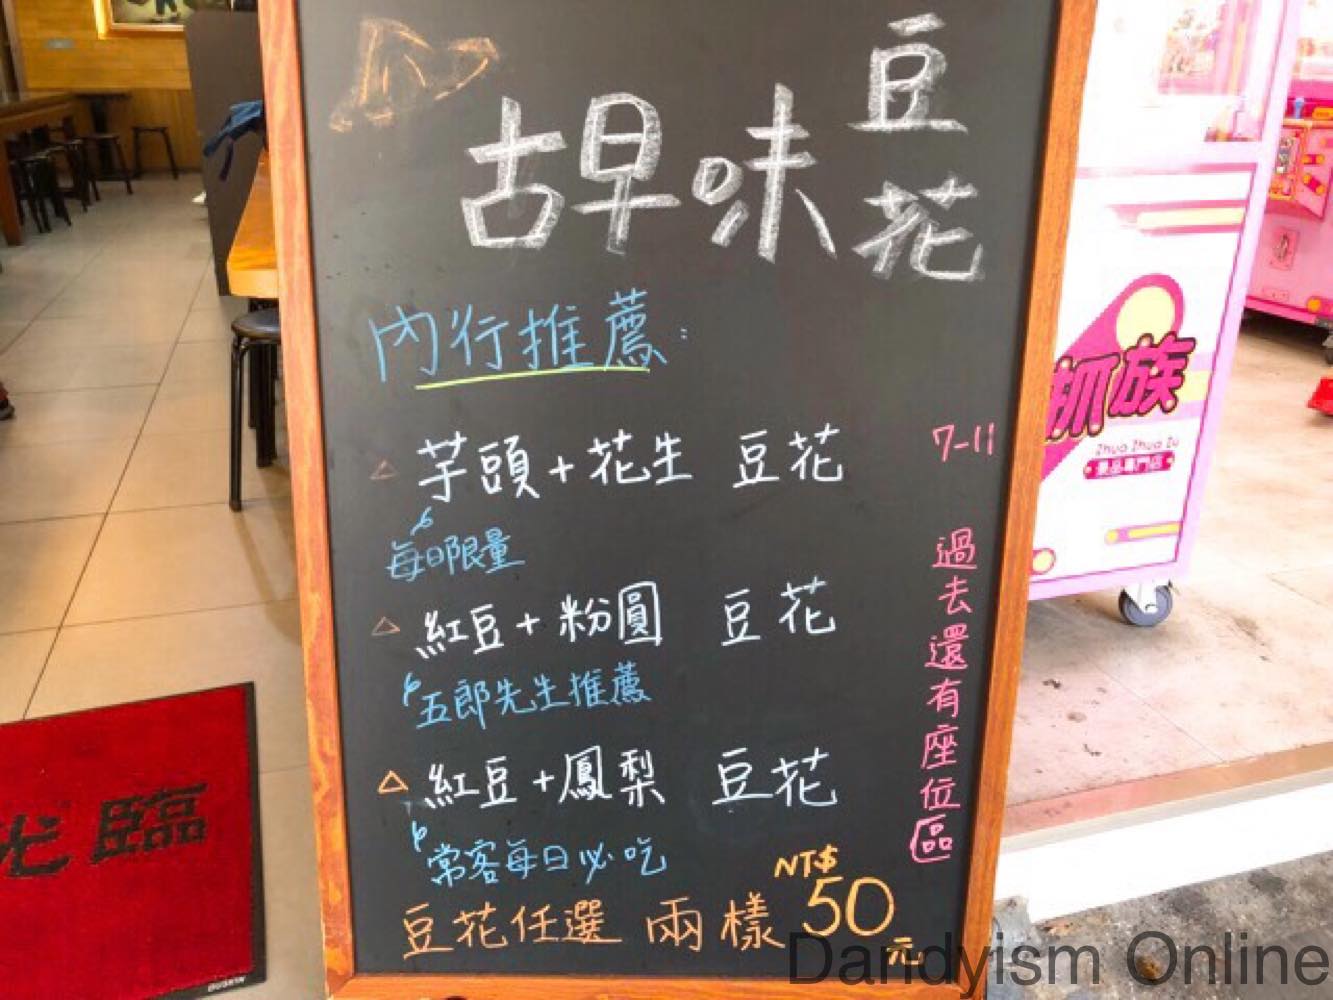 古早味豆花
內行推薦:
芋頭+花生 豆花
每日限量
紅豆+粉圓 豆花
五郎先生推薦
紅豆+鳳梨 豆花
常客每日必吃
豆花任選 兩樣 NT$50元
7-11 過去還有座位區
抓族
Zhua Zhua Zu
景品專門店
光臨
DUSKIN
Dandyism Online